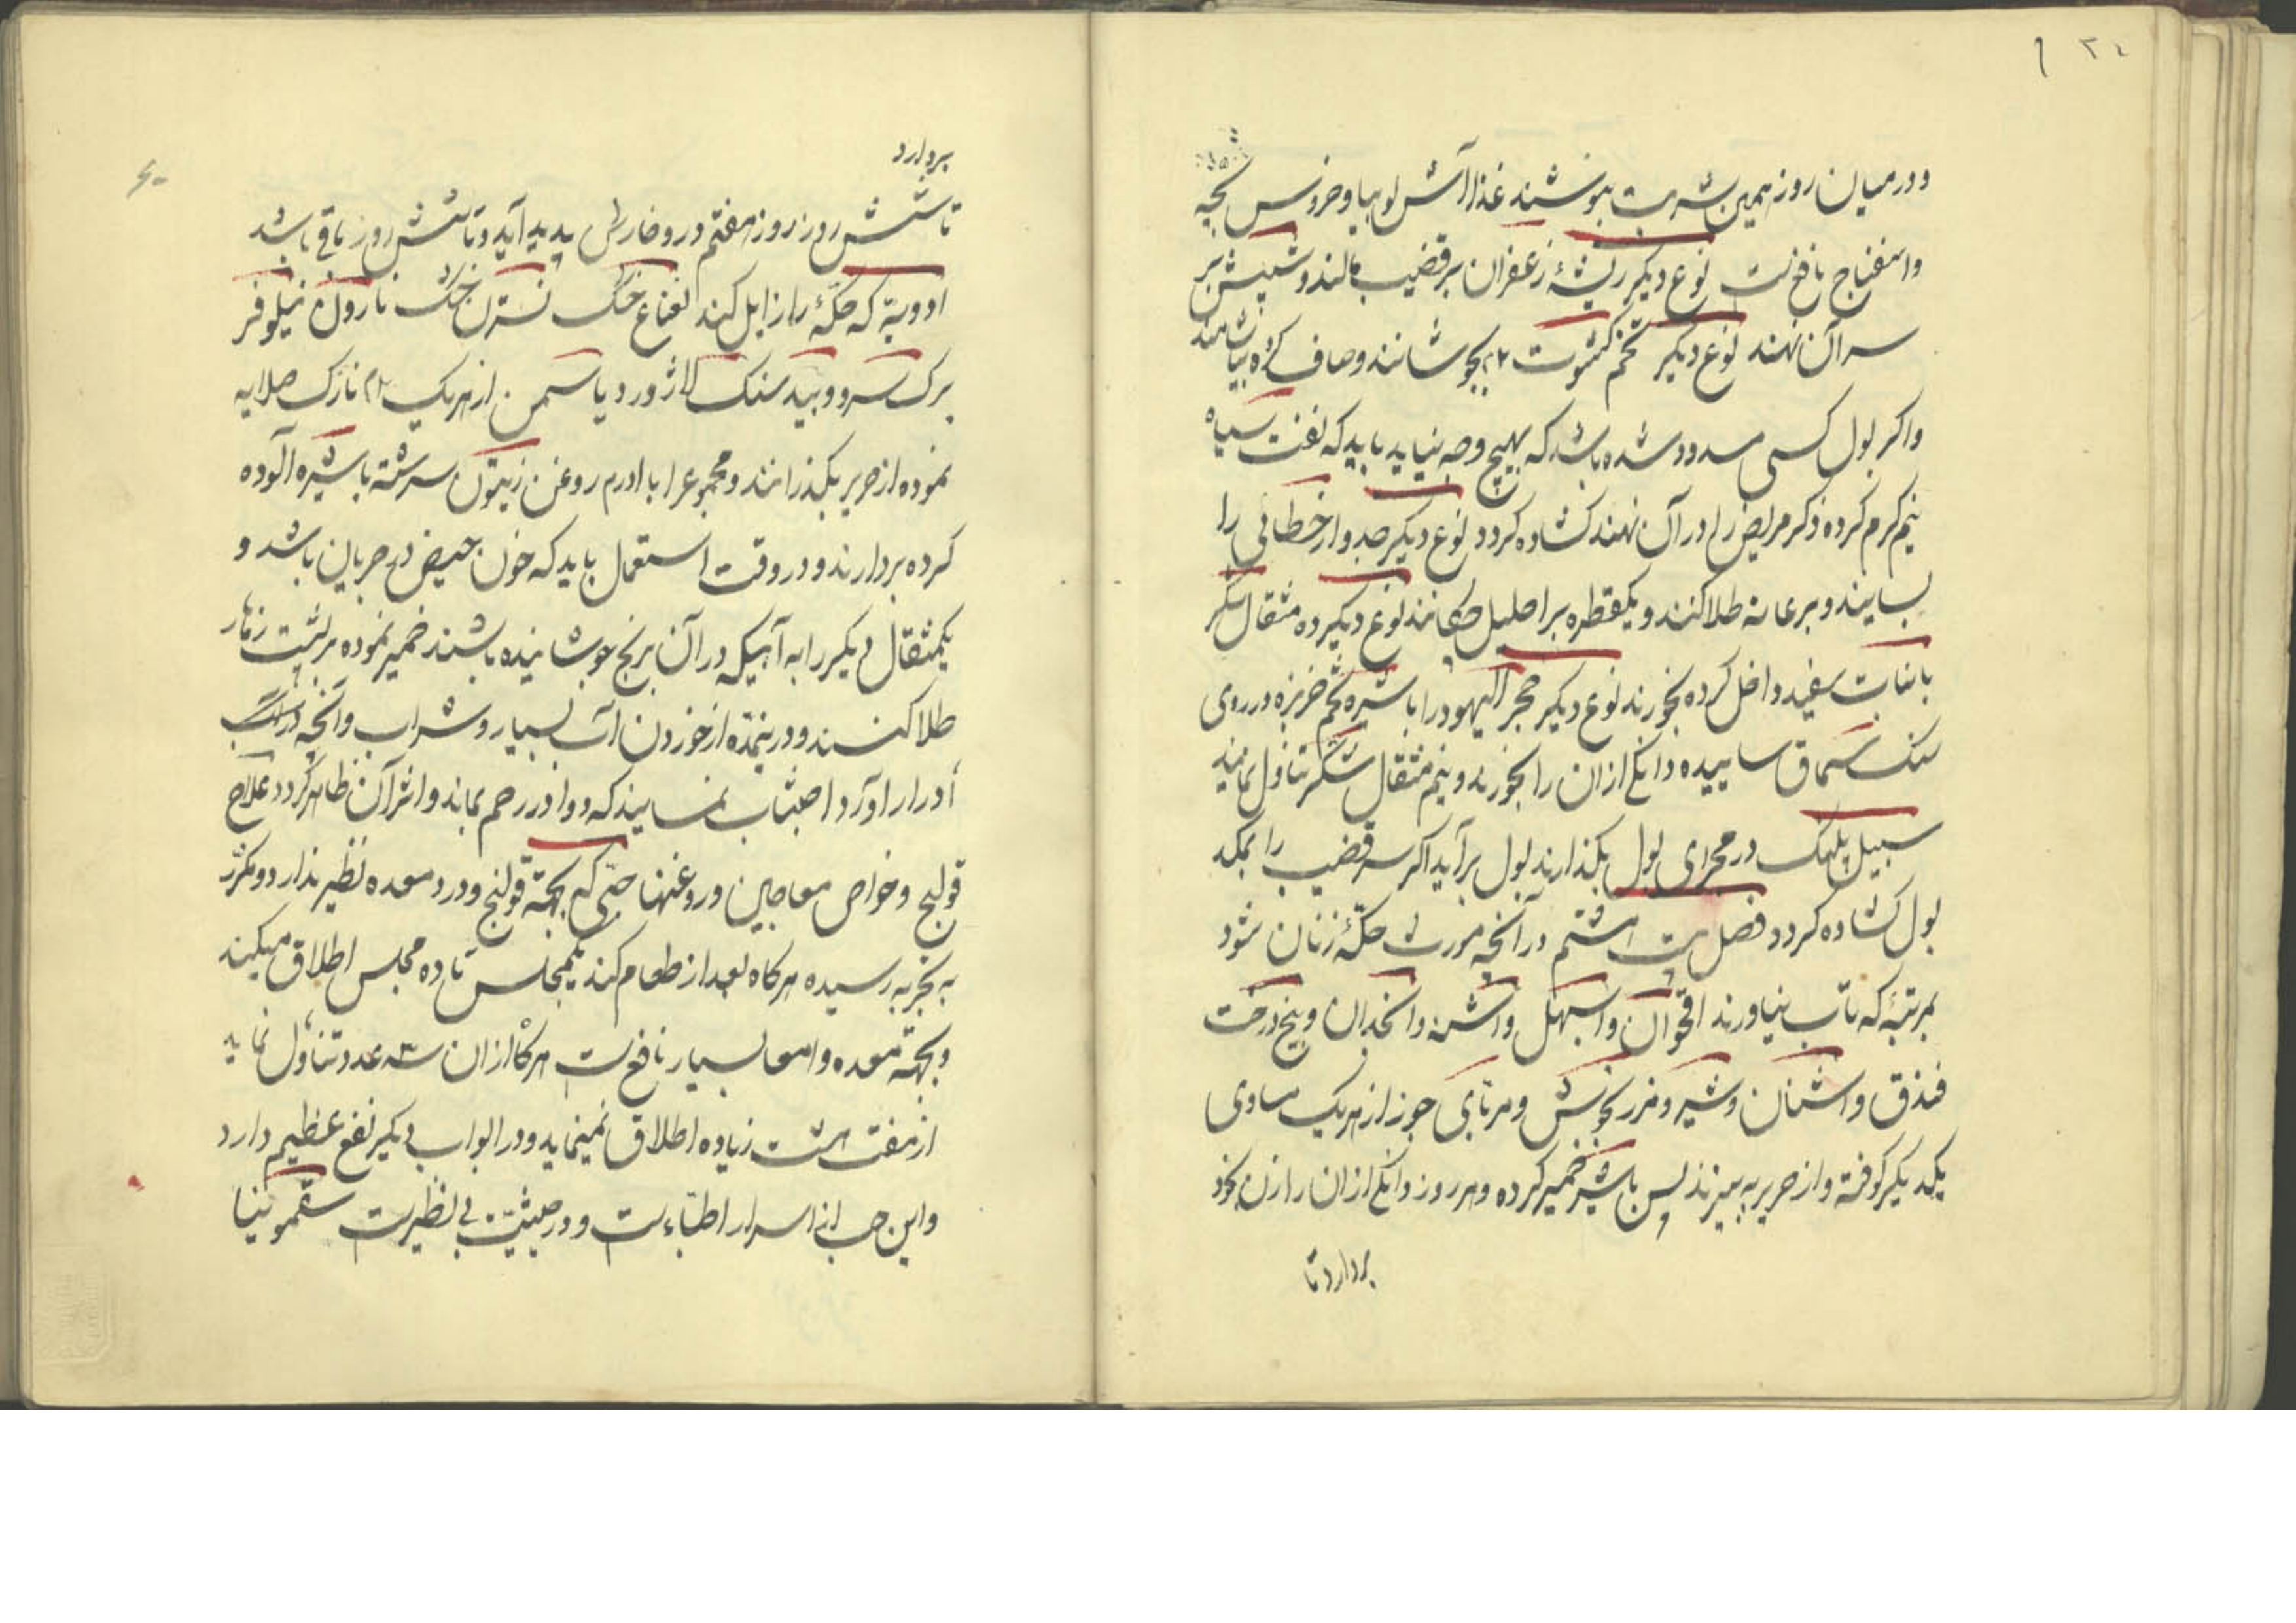 ۳٤
و در میان روز همین شربت بنوشند غذا آش لوبیا و خروس بچه
و اسفناج نافع است نوع دیگر ریشهٔ زعفران بر قضیب مالند و شپش بر
سر آن نهند نوع دیگر تخم کشوث ۲م بجوشانند و صاف کرده بیاشامند
و اکر بول کسی مسدود شده باشد که بهیچ وجه نیاید باید که نفت سیاه
نیم کرم کرده ذکر مریض را در آن نهند کشاده کردد نوع دیگر جدوار خطائی را
بسایند و بر عانه طلا کنند و یکقطره بر احلیل چکانند نوع دیگر ده مثقال شکر
با نبات سفید داخل کرده بخورند نوع دیگر حجر الیهود را با شیره تخم خربزه در روی
سنک سماق ساییده دانکی از ان را بخورند و نیم مثقال شکر تناول نمایند
سبیل پلنک در مجرای بول بکذارند بول برآید اکر سر قضیب را بمکد
بول کشاده کردد فصل بیست هشتم در آنچه مورث حکّهٔ زنان شود
بمرتبهٔ که تاب نیاورند اقحوان و اسپهل و اشنه و انخدان و بیخ درخت
فندق و اشنان و شیر و مزر کجوش و مربّای جوز از هریک مساوی
یکدیکر کوفته و از حریر به بیزند پس با شیر خمیر کرده و هر روز دانکی از ان را زن بخود
بردارد تا
بردارد
تا شش روز روز هفتم در و خارش پدید آید و تا شش روز باقی باشد
ادویهٔ که حکّهٔ را زایل کند نعناع خنک نسترن خنک نارون نیلوفر
برک سرو و بید سنک لاژورد یاسمن از هریک ۲م نازک صلایه
نموده از حریر بکذرانند و مجموعرا با درم روغن زیتون سرشته با شیره آلوده
کرده بردارند و در وقت استعمال باید که خون حیض در جریان باشد و
یکمثقال دیکر را به آبیکه در آن برنج جوشانیده باشند خمیر نموده بر پشت زهار
طلا کنند و در ینمدّه از خوردن آب بسیار و شراب و آنچه در
أدرار آورد اجتناب نمایند که دوا در رحم بماند و اثر آن ظاهر کردد علاج
قولنج و خواص معاجین و روغنها حبّی که بجهة قولنج و درد معده نظیر ندارد و مکرّر
به تجربه رسیده هرکاه بعد از طعام کند یکمجلس تا ده مجلس اطلاق میکند
و بجهة معده و امعا بسیار نافع است هرکاه از ان سه عدد تناول نماید
از هفت هشت زیاده اطلاق نمینماید و در ابواب دیکر نفع عظیم دارد
و این حب از اسرار اطبّاءست و در حیثیّت بی نظیر است سقمونیا